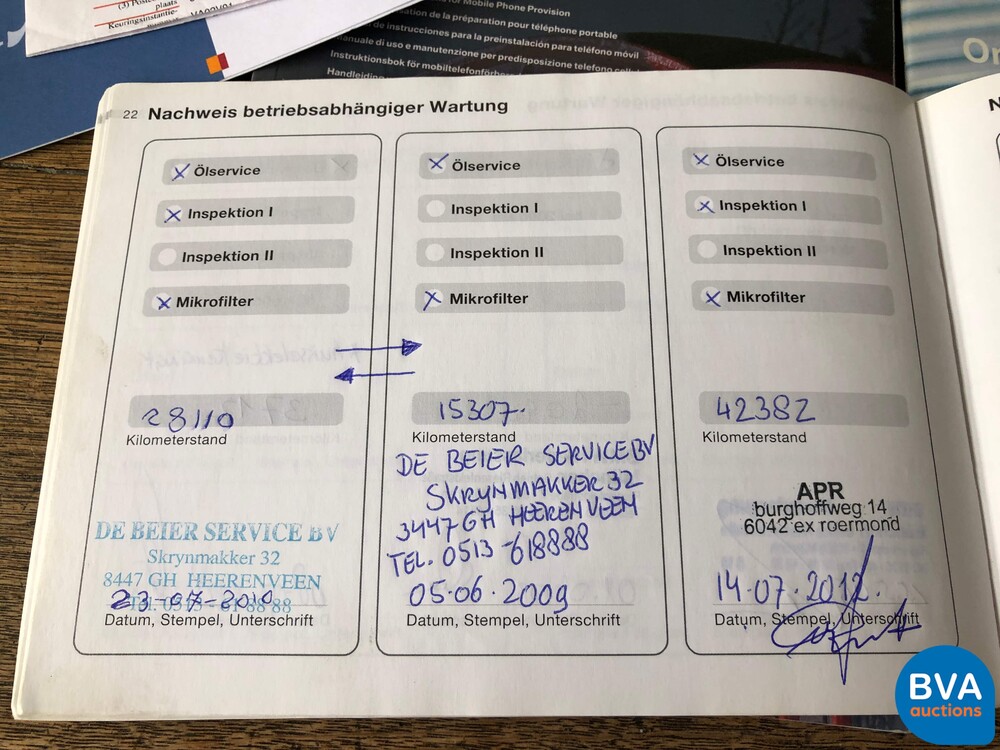 (3) Poste
plaats
Keuringsinstantie-
for Mobile Phone Provision
ation de la préparation pour téléphone portable
de instrucciones para la preinstalación para teléfono móvil
Manuale di uso e manutenzione per predisposizione telefono
Instruktionsbok för
Handleiding
22 Nachweis betriebsabhängiger Wartung
x Ölservice
x Inspektion I
Inspektion II
x Mikrofilter
28110
Kilometerstand
DE BEIER SERVICE BV
Skrynmakker 32
8447 GH HEERENVEEN
Tel. 0513 - 61 88 88
23-07-2010
Datum, Stempel, Unterschrift
x Ölservice
Inspektion I
Inspektion II
x Mikrofilter
15307.
Kilometerstand
DE BEIER SERVICE BV
SKRYNMAKKER 32
3447 GH HEERENVEEN
TEL. 0513-618888
05.06.2009
Datum, Stempel, Unterschrift
x Ölservice
x Inspektion I
Inspektion II
x Mikrofilter
42382
Kilometerstand
APR
burghoffweg 14
6042 ex roermond
14.07.2012.
Datum, Stempel, Unterschrift
BVA
auctions